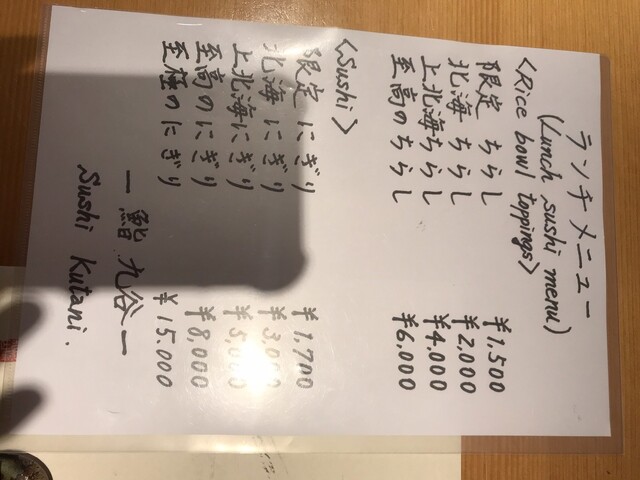 ランチメニュー
(Lunch sushi menu)
<Rice bowl toppings>
限定 ちらし ¥1.500
北海 ちらし ¥2,000
上北海ちらし ¥4,000
至高のちらし ¥6,000
<Sushi>
限定 にぎり ¥1.700
北海 にぎり ¥3,000
上北海にぎり ¥5,000
至高のにぎり ¥8,000
至極のにぎり ¥15.000
ー 鮨 九谷 ー
Sushi Kutani.